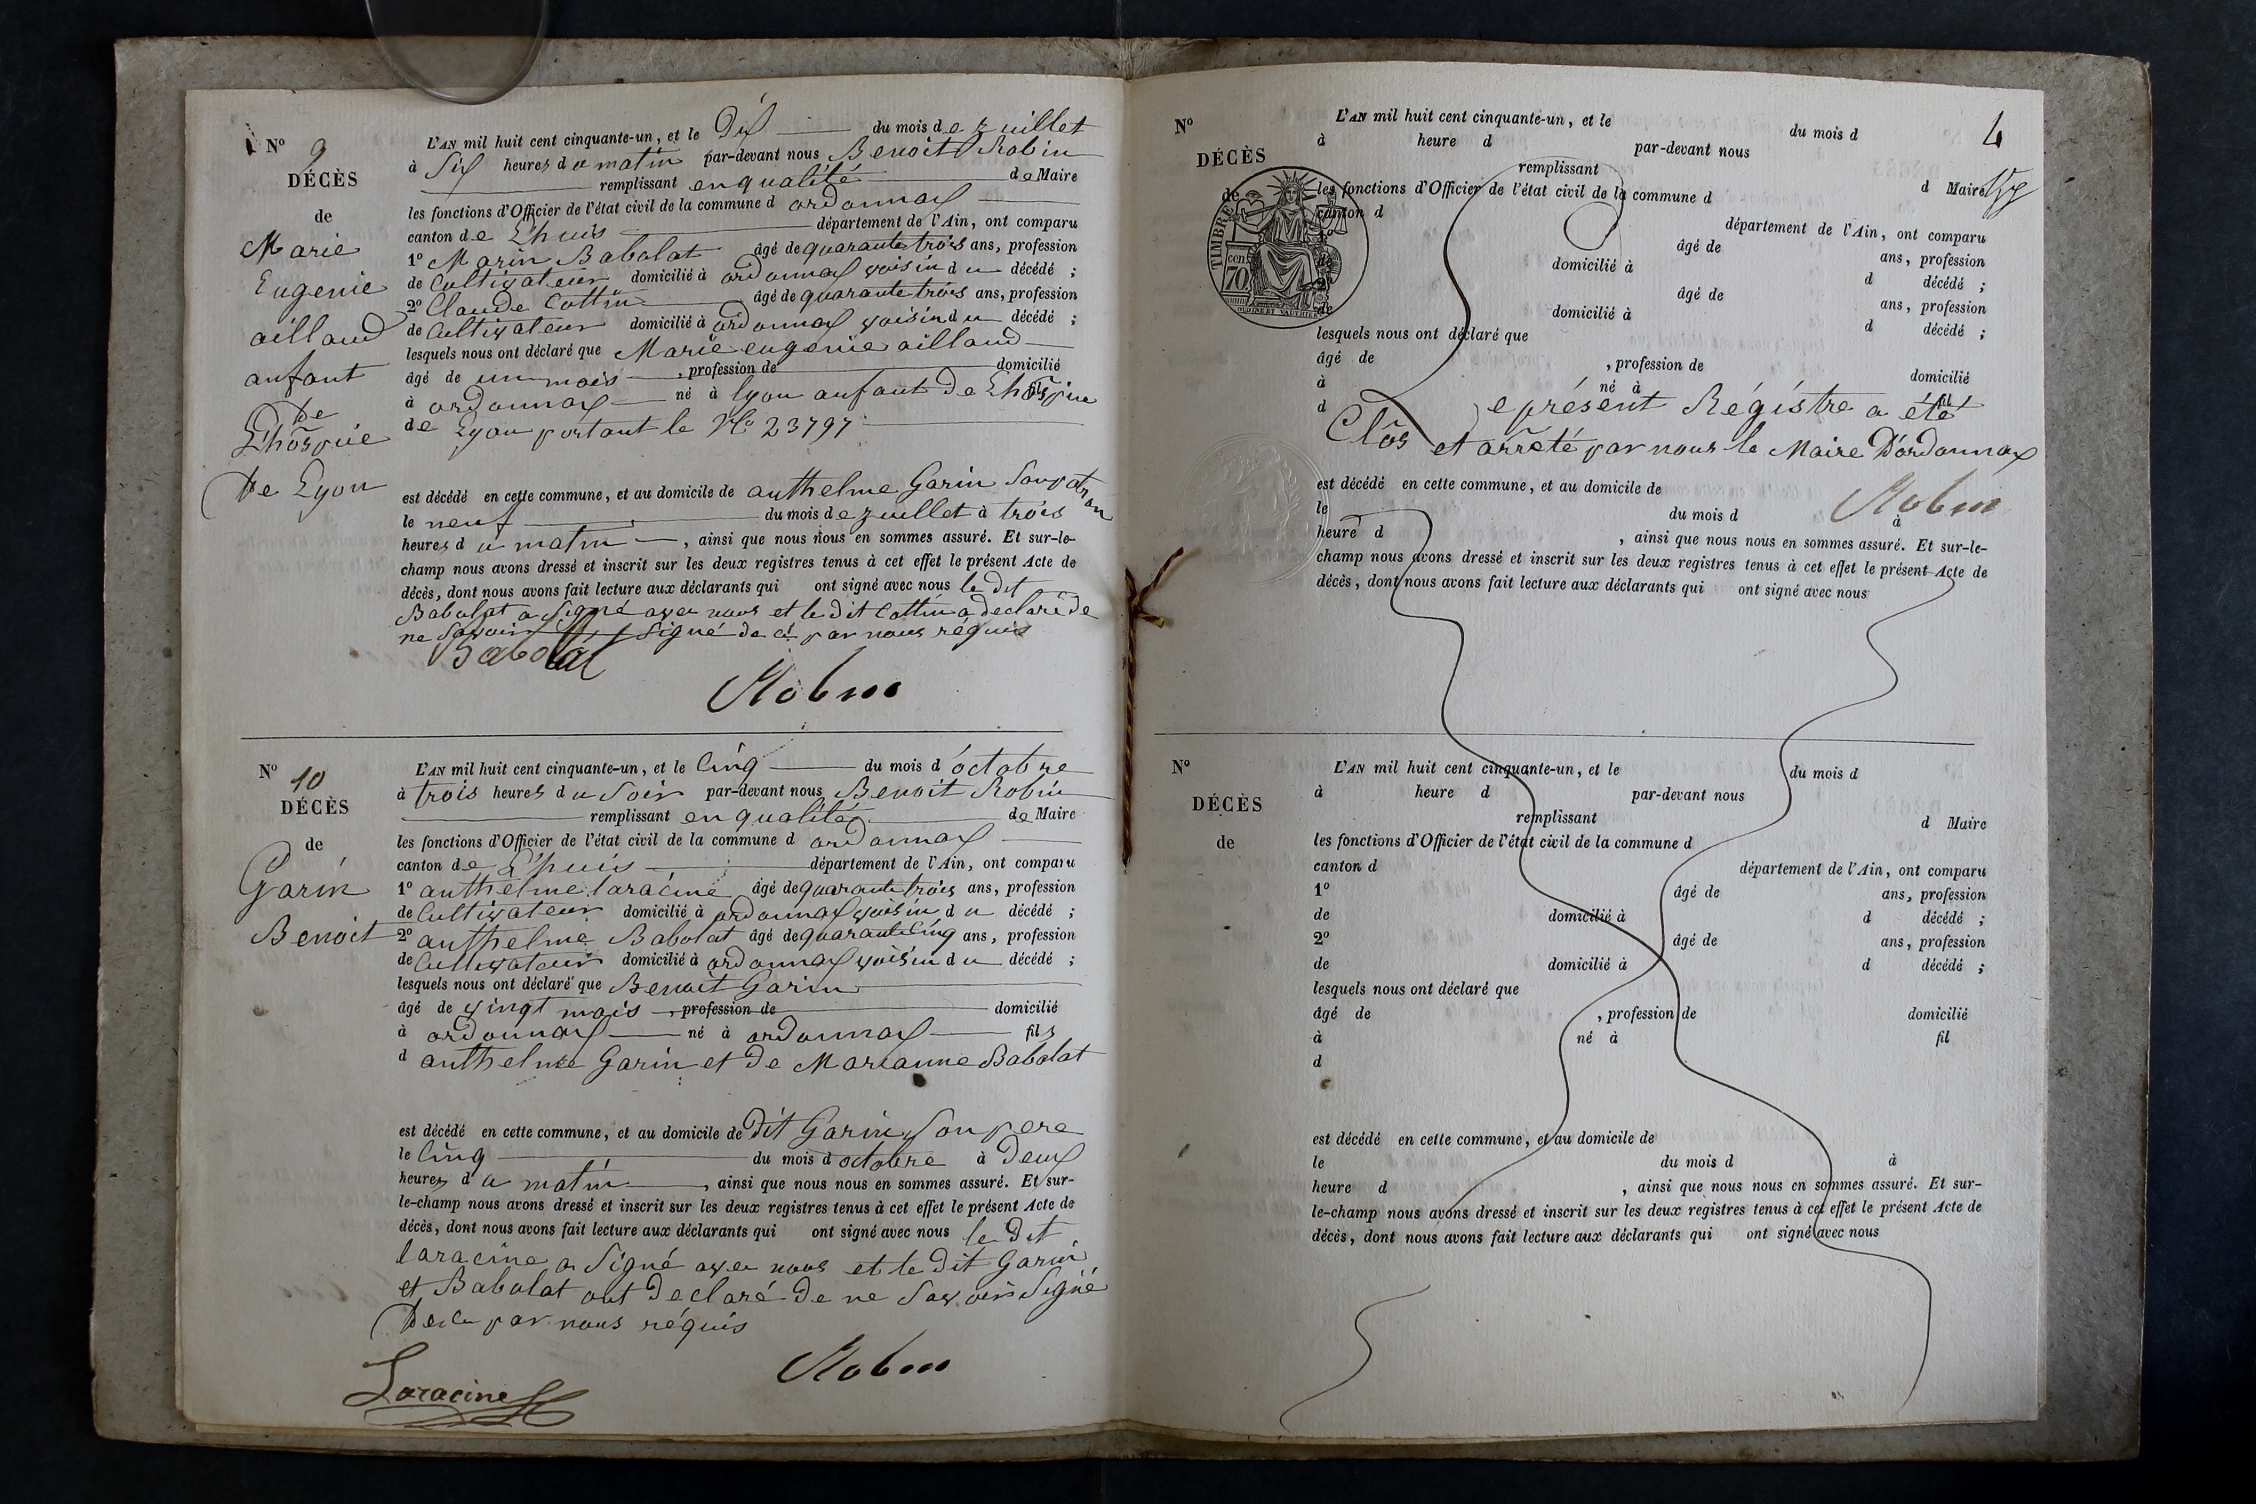 N° 9
DÉCÈS
de
Marie
Eugenie
ailland
anfant
de
L'hospice
De Lyon
L'AN mil huit cent cinquante-un, et le Dix du mois de juillet
à Six heures du matin par-devant nous Benoit Robin
remplissant en qualité de Maire
les fonctions d'Officier de l'état civil de la commune d ordonnax
canton de L'huis département de l'Ain, ont comparu
1° Marin Babolat âgé de quarante trois ans, profession
de Cultivateur domicilié à ordonnax voisin du décédé ;
2° Claude Cottin âgé de quarante trois ans, profession
de Cultivateur domicilié à ordonnax voisin du décédé ;
lesquels nous ont déclaré que Marie eugenie ailland
âgé de un mois , profession de domicilié
à ordonnax né à lyon anfant de Lhospice fil
de Lyon portant le No 23797
est décédé en cette commune, et au domicile de anthelme Garin Son patron
le neuf du mois de juillet à trois
heures du matin , ainsi que nous nous en sommes assuré. Et sur-le-
champ nous avons dressé et inscrit sur les deux registres tenus à cet effet le présent Acte de
décès, dont nous avons fait lecture aux déclarants qui ont signé avec nous le dit
Babolat a Signé avec nous et le dit Cottin a declaré de
ne Savoir Signé de ce par nous réquis
Babolat
Robin
N° 10
DÉCÈS
de
Garin
Benoit
L'AN mil huit cent cinquante-un, et le Cinq du mois d'octobre
à trois heures du Soir par-devant nous Benoit Robin
remplissant en qualité de Maire
les fonctions d'Officier de l'état civil de la commune d ordonnax
canton de L'huis département de l'Ain, ont comparu
1° anthelme laracine âgé de quarante trois ans, profession
de Cultivateur domicilié à ordonnax voisin du décédé ;
2° anthelme Babolat âgé de quarante Cinq ans, profession
de Cultivateur domicilié à ordonnax voisin du décédé ;
lesquels nous ont déclaré que Benoit Garin
âgé de vingt mois , profession de domicilié
à ordonnax né à ordonnax fils
d anthelme Garin et de Marianne Babolat
est décédé en cette commune, et au domicile de dit Garin Son pere
le Cinq du mois d octobre à Deux
heures du matin , ainsi que nous nous en sommes assuré. Et sur-
le-champ nous avons dressé et inscrit sur les deux registres tenus à cet effet le présent Acte de
décès, dont nous avons fait lecture aux déclarants qui ont signé avec nous le dit
laracine a Signé avec nous et le dit Garin
et Babolat ont declaré de ne Savoir Signé
de ce par nous réquis
Laracine
Robin
4
N°
DÉCÈS
de
TIMBRE
70 cen
L'AN mil huit cent cinquante-un, et le du mois d
à heure d par-devant nous
remplissant d Maire
les fonctions d'Officier de l'état civil de la commune d
canton d département de l'Ain, ont comparu
1° âgé de ans, profession
de domicilié à d décédé ;
2° âgé de ans, profession
de domicilié à d décédé ;
lesquels nous ont déclaré que
âgé de , profession de domicilié
à né à fil
d
Le présent Régistre a été
Clôs et arrêté par nous le Maire D'ordonnax
Robin
est décédé en cette commune, et au domicile de
le du mois d à
heure d , ainsi que nous nous en sommes assuré. Et sur-le-
champ nous avons dressé et inscrit sur les deux registres tenus à cet effet le présent Acte de
décès, dont nous avons fait lecture aux déclarants qui ont signé avec nous
N°
DÉCÈS
de
L'AN mil huit cent cinquante-un, et le du mois d
à heure d par-devant nous
remplissant d Maire
les fonctions d'Officier de l'état civil de la commune d
canton d département de l'Ain, ont comparu
1° âgé de ans, profession
de domicilié à d décédé ;
2° âgé de ans, profession
de domicilié à d décédé ;
lesquels nous ont déclaré que
âgé de , profession de domicilié
à né à fil
d
est décédé en cette commune, et au domicile de
le du mois d à
heure d , ainsi que nous nous en sommes assuré. Et sur-
le-champ nous avons dressé et inscrit sur les deux registres tenus à cet effet le présent Acte de
décès, dont nous avons fait lecture aux déclarants qui ont signé avec nous